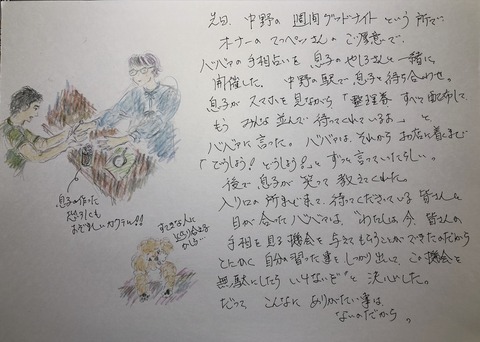 先日、中野の 週間グッドナイト という所で
オーナーの てっぺンさんの ご厚意で、
ババアの 手相占いを 息子の やしろさんと 一緒に
開催した。 中野の駅で 息子と 待ち合わせ。
息子が スマホを 見ながら 「整理券 すべて配布して、
もう みんな 並んで 待ってくれているよ」 と
ババアに 言った。 ババアは、それから お店に着くまで
「どうしよう! どうしよう!」と ずっと 言っていたらしい。
後で 息子が 笑って 教えてくれた。
入り口の 所まで来て、待ってくださっている 皆さんと
目が 合った ババアは、"わたしは 今、皆さんの
手相を 見る 機会を 与えてもらうことができたのだから
とにかく 自分の 習った事を しっかり出して、この 機会を
無駄にしたら いけないぞ" と 決心した。
だって こんなに ありがたい 事は
ないのだから。
息子の作った
おぞましいカクテル!!
すてきな人に
めぐり会える
かしら…